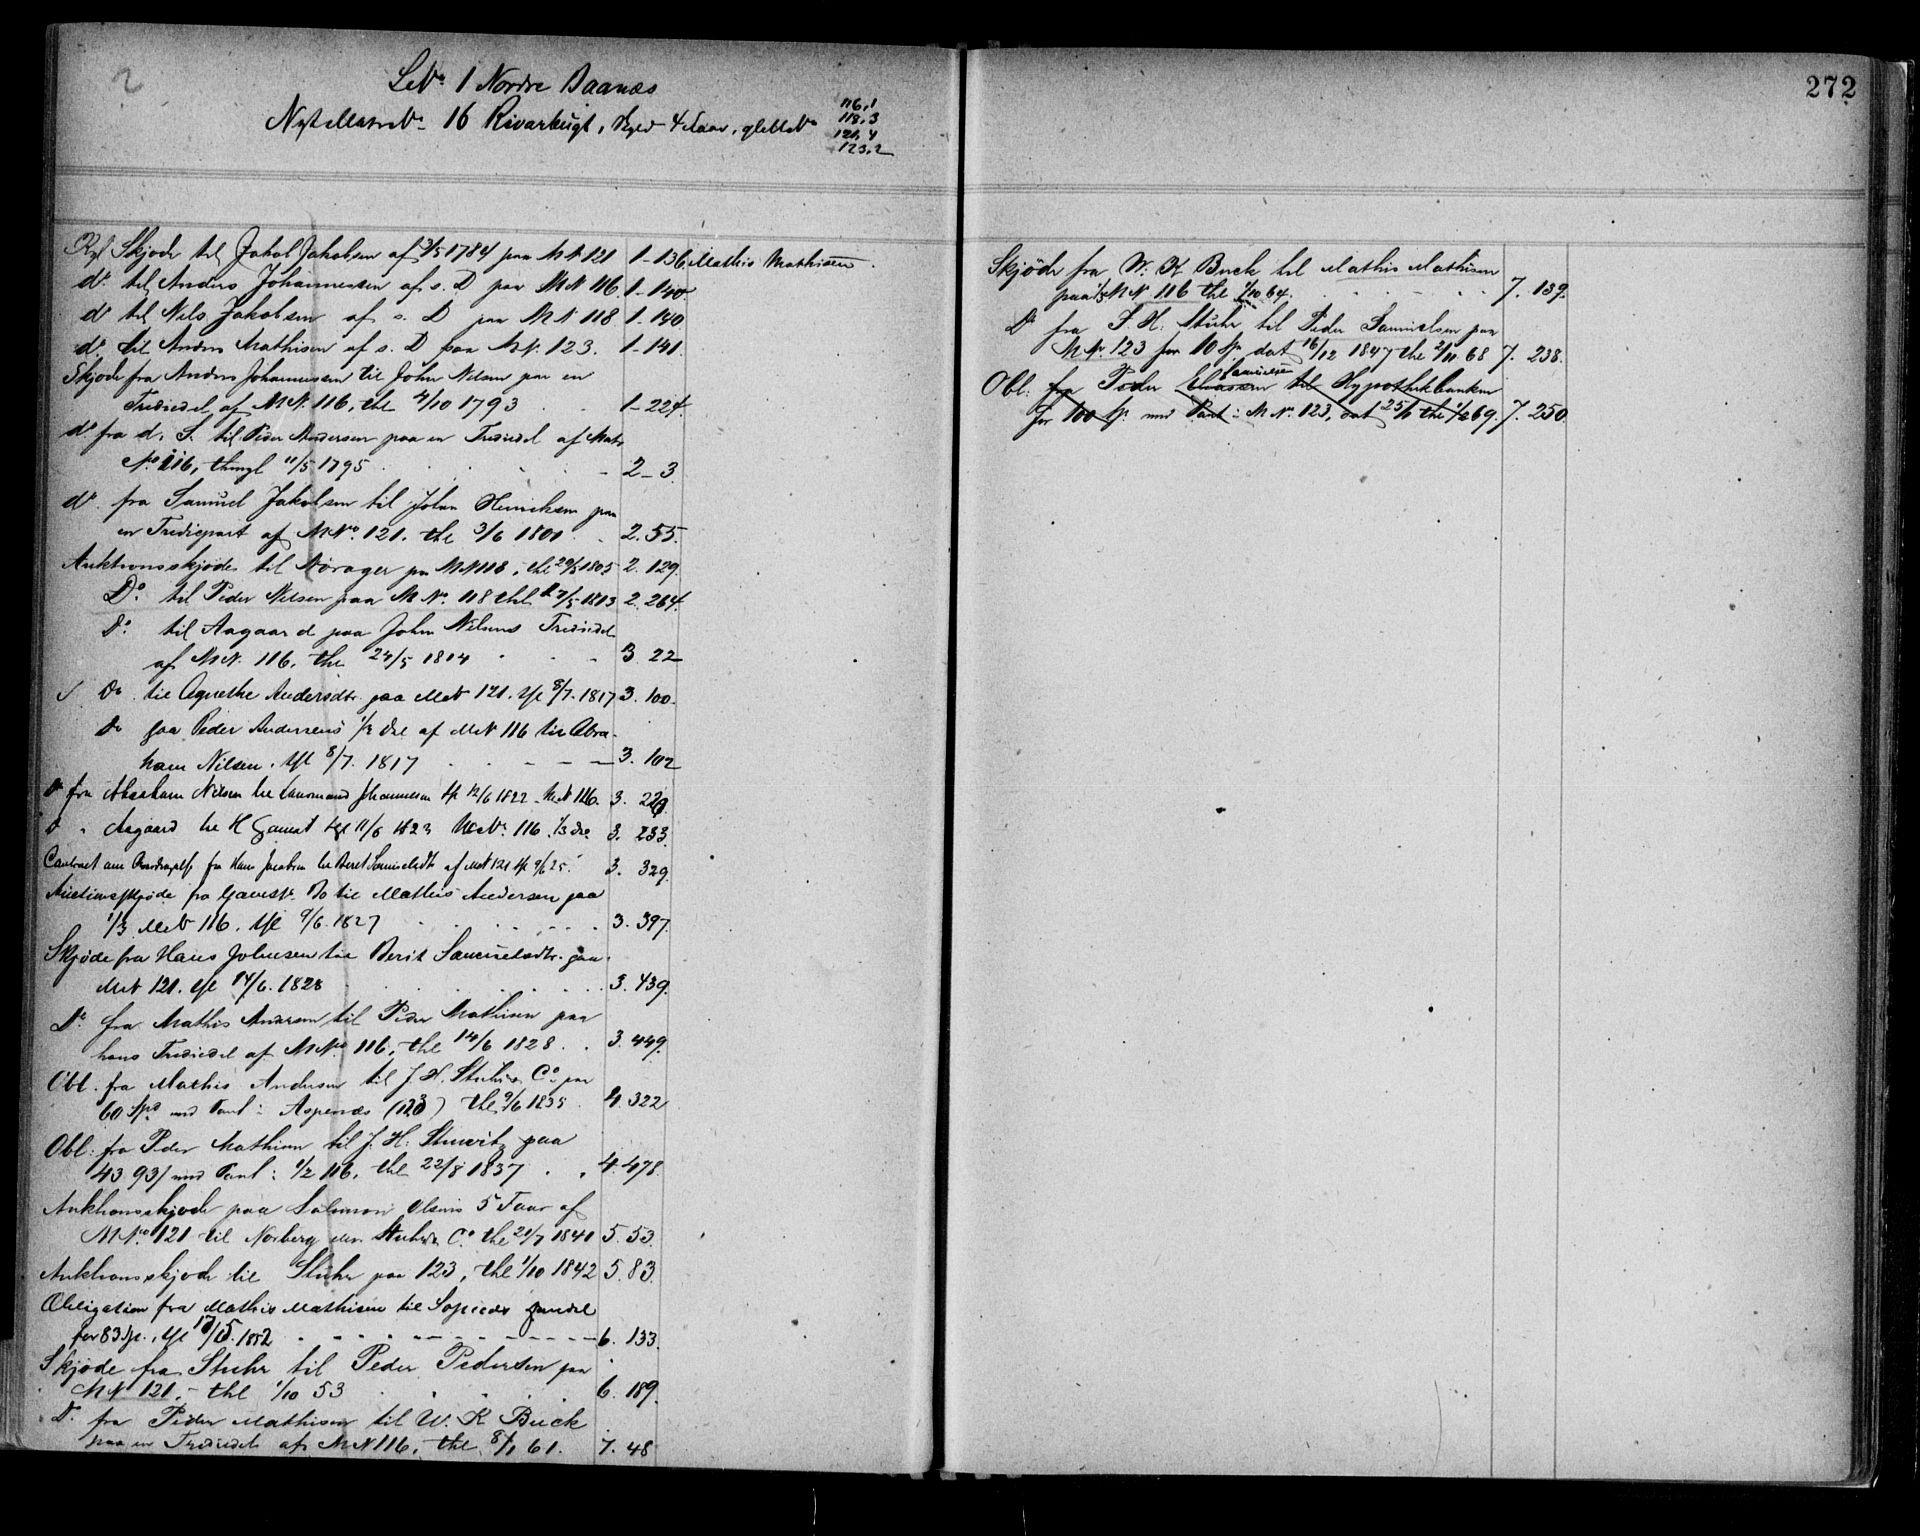 2
272
No 1 Nordre
Nyt Matr No 16 Rivarbugt, Skyld 4 Daar, gl
116,1
118,3
121,4
123,2
Kgl Skjøde til Jakob Jakobsen af 3/5 1784 paa M N 121 1-136 Mathis Mathisen.
do til Anders Johannessen af s. D paa M N 116 1-140
do til Nils Jakobsen af s. D paa M N 118 1-140
do til Anders Mathisen af s. D paa M N. 123. 1-141.
Skjøde fra Anders Johannessen til John Nilsen paa en
Trediedel af M N. 116, thl 4/10 1793 . . 1-224.
do fra d. S. til Peder Andersen paa en Trediedel af Matr
No 116, thingl 11/5 1795 . . . . - 2-3.
do fra Samuel Jakobsen til Johan Henriksen paa
en Trediepart af M No. 121. thl 3/6 1801 . 2.55.
Auktionsskjøde til Nørager paa M N 118, thl 29/5 1805 2.129.
Do til Peder Nilsen paa M No. 118 thl 27/5 1813 2.264.
Do til Aagaard paa John Nilsens Trediedel
af M N. 116, thl 24/5 1814 . . . 3 22
Do til Agnethe Andersdtr. paa M N 121. thl 8/7. 1817 3. 100.
Do paa Peder Andersens 1/3 Del af M N 116 til Abra-
ham Nilsen. thl 8/7. 1817 . - - - 3. 102
Do fra Abraham Nilsen til Johannesen thl 12/6 1822 - M N 116. 3. 229.
Do " Aagaard til H Gamst thl 11/6 1823 M No. 116. 1/3 Del 3. 233.
Contract om fra Hans til Berit Samuelsdtr af M N 121 thl 9/6 25. 3. 329.
Auctionsskjøde fra Gamst til Mathis Andersen paa
1/3 M N 116. thl 9/6. 1827 . . . . . 3. 397.
Skjøde fra Hans Johnsen til Berit Samuelsdtr. paa
M N 121. thl 14/6. 1828 . . . . . 3. 439.
Do fra Mathis Andersen til Peder Mathisen paa
hans Trediedel af M No 116, thl 14/6 1828. . 3. 449.
Obl. fra Mathis Andersen til J. H. Stuhrs Co. paa
60 Spd med Pant i Aspenæs (123) thl 9/6 1835 4. 322
Obl: fra Peder Mathisen til J. H. paa
43 93/ med Pant i 1/2 116. thl 22/8 1837 . . 4. 478.
Auktionsskjøde paa Salomon Olsens 5 Daar af
M No 121 til Norberg Stuhr & Co thl 21/7 1841 5. 53.
Auktionsskjøde til Stuhr paa 123, thl 1/10 1842 5. 83.
Obligation fra Mathis Mathisen til
for 83 Sp., thl 1852 - - - - 6. 133.
Skjøde fra Stuhr til Peder Pedersen paa
M N 121, - thl 1/10 53 . . . . 6. 189.
Do fra Peder Mathisen til W. K Buck
paa en Trediedel af M N 116, thl 8/1 61. 7. 48
Skjøde fra W. K Buck til Mathis Mathisen
paa 1/3 M N. 116 thl 1/10 64. . . . . 7. 139.
Do fra J. H. Stuhr til Peder Samuelsen paa
M No. 123 for 10 Sp. dat 16/12 1847 thl 2/10 68 7. 238.
Samuelsen
Obl. fra Peder Eliassen til Hypothekbanken
for 100 Sp. med Pant i M No. 123, dat 25/1 thl 1/2 69. 7. 250